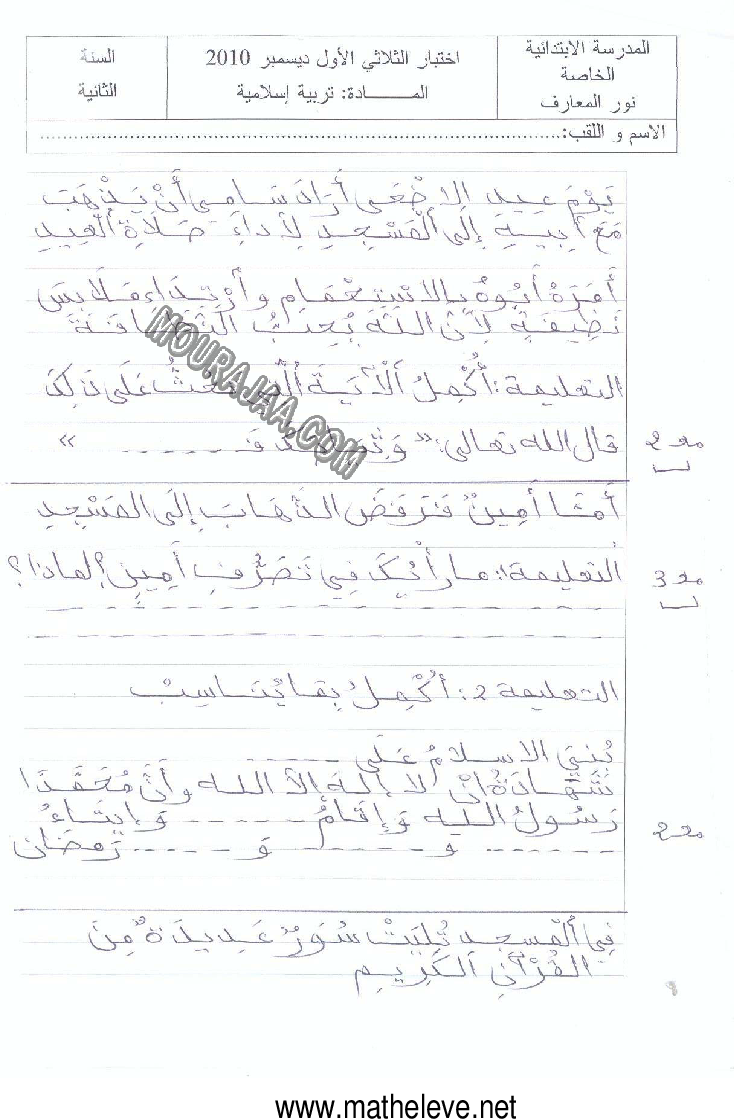 المدرسة الابتدائية
الخاصة
نور المعارف
اختبار الثلاثي الأول ديسمبر 2010
المـــــــادة: تربية إسلامية
السنة
الثانية
الاسم و اللقب:................................................................................
يَوْمَ عِيدِ الاِضْحَى أَرَادَ سَامِي أَنْ يَذْهَبَ
مَعَ أَبِيهِ إِلَى اَلْمَسْجِدِ لِأَدَاءِ صَلَاةِ اُلْعِيدِ
أَمَرَهُ أَبُوهُ بِالاسْتِحْمَامِ وَارْتِدَاءِ مَلَابِسَ
نَظِيفَةٍ لِأَنَّ اللَّهَ يُحِبُّ النَّظَافَةَ
التعليمة: أُكْمِلُ اَلْآيَةَ اُلَّتِي تَحُثُّ عَلَى ذَلِكَ
قال الله تعالى: « وَثِيَـ ـ ـ ـ ـ ـ »
مع2
أَمَّا أَمِينٌ فَرَفَضَ الذَّهَابَ إِلَى المَسْجِدِ
اُلتعليمة1: ما رَأْيُكَ فِي تَصَرُّفِ أَمِينٍ؟ لماذا؟
مع3
التعليمة 2: أُكْمِلُ بِمَا يُنَاسِبُ
بُنِيَ الاسلامُ عَلَى ـ ـ ـ ـ ـ
شَهَادَةُ أَنْ لا إله إلا الله وأَنَّ مُحَمَّدًا
رَسُولُ الله وَإِقَامُ ـ ـ ـ ـ ـ وَإِيتَاءُ
ـ ـ ـ ـ ـ ـ وَ ـ ـ ـ ـ ـ ـ وَ ـ ـ ـ ـ ـ رَمضَان
مع2
فِي اُلمسجد تُلِيَتْ سُوَرٌ عَدِيدَةٌ مِنَ
القُرْآنِ الكَرِيمِ
MOURAJAA.COM
www.matheleve.net